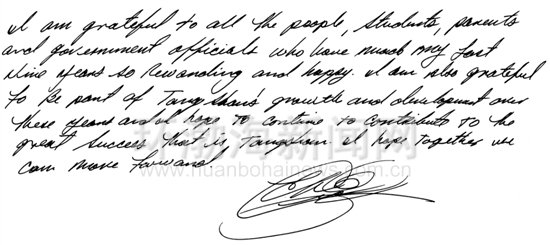 I am grateful to all the people, students, parents
and government officials who have made my last
nine years so rewarding and happy. I am also grateful
to be part of Tangshan's growth and development over
these years and I hope to continue to contribute to the
great success that is Tangshan. I hope together we
can move forward
环渤海新闻网
www.huanbohainews.com.cn